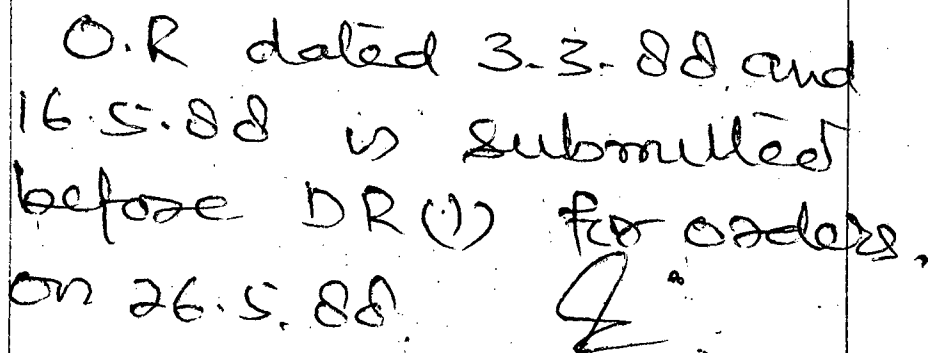 O.R dated 3.3.88 and
16.5.88 is submitted
before DR(J) for orders.
on 26.5.88